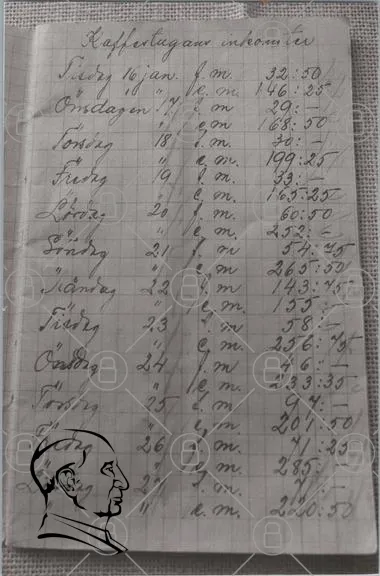 Kaffestugans inkomster
Tisdag 16 jan. f.m. 32:50
" " e.m. 146:25
Onsdagen 17 f.m 29:-
" e.m. 168:50
Torsdag 18 f.m. 30:-
" e.m. 199:25
Fredag 19 f.m. 33:-
" e.m. 165:25
Lördag 20 f.m. 60:50
" e.m. 252:-
Söndag 21 f.m 54:75
" " e.m 265:50
Måndag 22 f.m. 143:75
" e.m. 155:-
Tisdag 23 f.m 58:-
" e.m. 256:75
Onsdag 24 f.m. 46:-
" e.m. 233:35
Torsdag 25 f.m 97:-
" e.m. 201:50
26 f.m. 71:25
" e.m. 285:-
f.m.
" e.m. 220:50